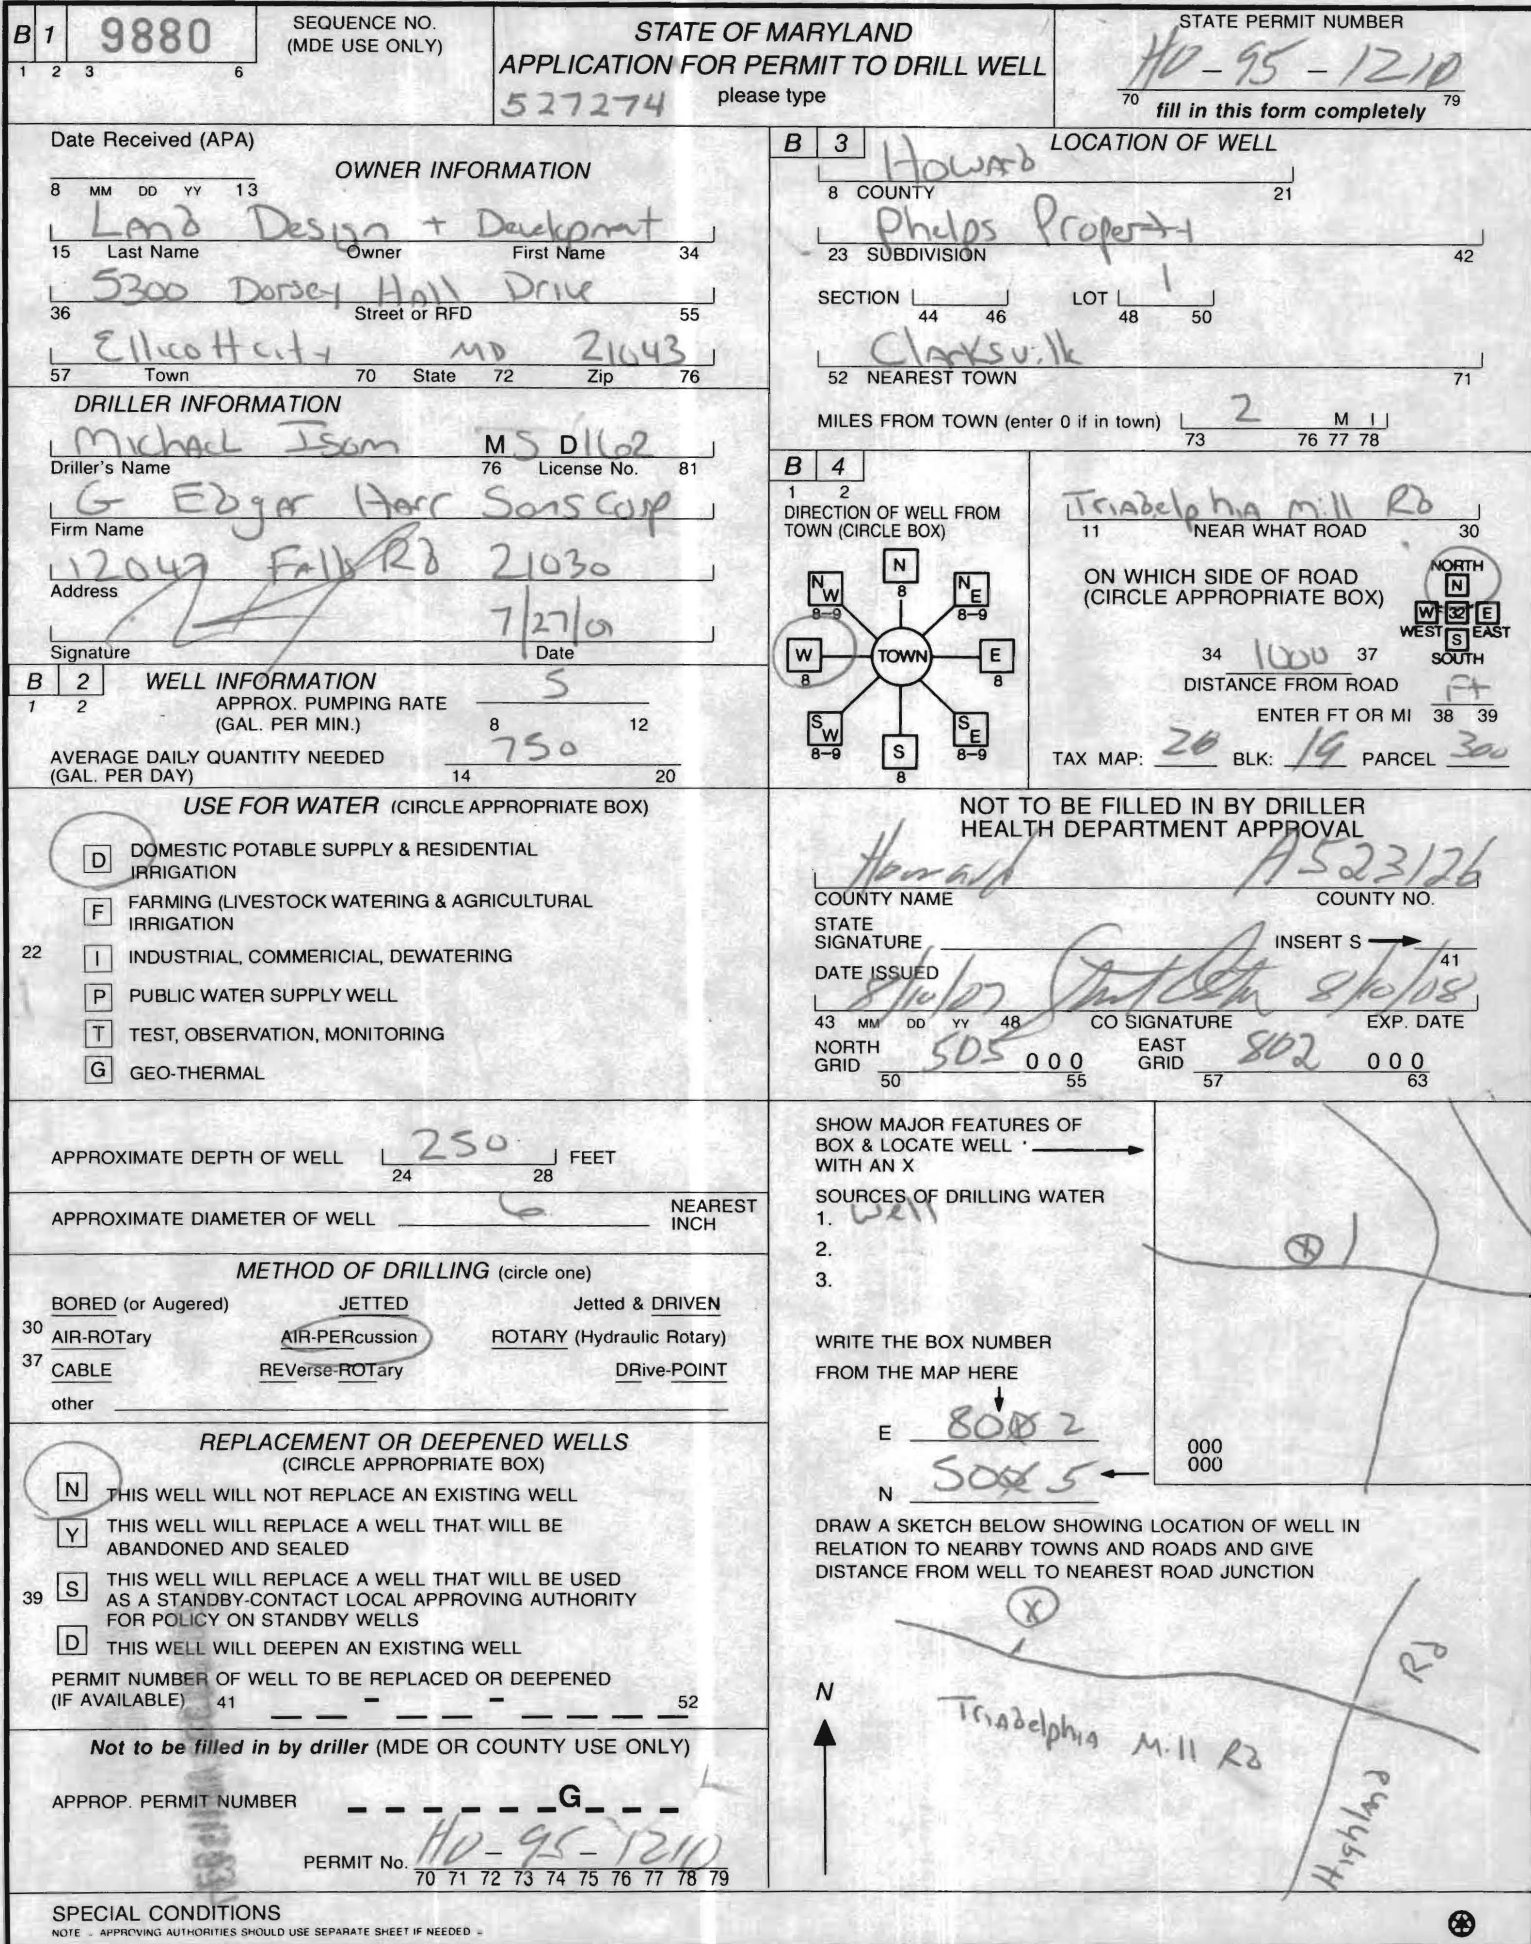 B 1 9880
1 2 3 6
SEQUENCE NO.
(MDE USE ONLY)
STATE OF MARYLAND
APPLICATION FOR PERMIT TO DRILL WELL
527274 please type
STATE PERMIT NUMBER
HO-95-1210
70 79
fill in this form completely
Date Received (APA)
8 MM DD YY 13
OWNER INFORMATION
LAnd Design + Development
15 Last Name Owner First Name 34
5300 Dorsey Hall Drive
36 Street or RFD 55
Ellicott city MD 21043
57 Town 70 State 72 Zip 76
DRILLER INFORMATION
Michael Isom M S D 1162
Driller's Name 76 License No. 81
G Edgar Harr Sons Corp
Firm Name
12047 Falls Rd 21030
Address
7/27/07
Signature Date
B 2 WELL INFORMATION
1 2
APPROX. PUMPING RATE 5
(GAL. PER MIN.) 8 12
AVERAGE DAILY QUANTITY NEEDED 750
(GAL. PER DAY) 14 20
USE FOR WATER (CIRCLE APPROPRIATE BOX)
D DOMESTIC POTABLE SUPPLY & RESIDENTIAL
IRRIGATION
F FARMING (LIVESTOCK WATERING & AGRICULTURAL
IRRIGATION
22 I INDUSTRIAL, COMMERICIAL, DEWATERING
P PUBLIC WATER SUPPLY WELL
T TEST, OBSERVATION, MONITORING
G GEO-THERMAL
APPROXIMATE DEPTH OF WELL 250 FEET
24 28
APPROXIMATE DIAMETER OF WELL 6 NEAREST
INCH
METHOD OF DRILLING (circle one)
BORED (or Augered) JETTED Jetted & DRIVEN
30 AIR-ROTary AIR-PERcussion ROTARY (Hydraulic Rotary)
37 CABLE REVerse-ROTary DRive-POINT
other
REPLACEMENT OR DEEPENED WELLS
(CIRCLE APPROPRIATE BOX)
N THIS WELL WILL NOT REPLACE AN EXISTING WELL
Y THIS WELL WILL REPLACE A WELL THAT WILL BE
ABANDONED AND SEALED
39 S THIS WELL WILL REPLACE A WELL THAT WILL BE USED
AS A STANDBY-CONTACT LOCAL APPROVING AUTHORITY
FOR POLICY ON STANDBY WELLS
D THIS WELL WILL DEEPEN AN EXISTING WELL
PERMIT NUMBER OF WELL TO BE REPLACED OR DEEPENED
(IF AVAILABLE) 41 - - 52
Not to be filled in by driller (MDE OR COUNTY USE ONLY)
APPROP. PERMIT NUMBER G
PERMIT No. HO-95-1210
70 71 72 73 74 75 76 77 78 79
B 3 LOCATION OF WELL
Howard
8 COUNTY 21
Phelps Property
23 SUBDIVISION 42
SECTION LOT 1
44 46 48 50
Clarksville
52 NEAREST TOWN 71
MILES FROM TOWN (enter 0 if in town) 2 M I
73 76 77 78
B 4
1 2
DIRECTION OF WELL FROM
TOWN (CIRCLE BOX)
N
8
NW
8-9
NE
8-9
W
8
TOWN
E
8
SW
8-9
S
8
SE
8-9
Triadelphia Mill Rd
11 NEAR WHAT ROAD 30
ON WHICH SIDE OF ROAD
(CIRCLE APPROPRIATE BOX)
NORTH
N
W 32 E
WEST S EAST
SOUTH
34 1000 37
DISTANCE FROM ROAD Ft
ENTER FT OR MI 38 39
TAX MAP: 28 BLK: 19 PARCEL 300
NOT TO BE FILLED IN BY DRILLER
HEALTH DEPARTMENT APPROVAL
Howard A523126
COUNTY NAME COUNTY NO.
STATE
SIGNATURE INSERT S
41
DATE ISSUED
8/10/07 8/10/08
43 MM DD YY 48 CO SIGNATURE EXP. DATE
NORTH
GRID 505 000
50 55
EAST
GRID 802 000
57 63
SHOW MAJOR FEATURES OF
BOX & LOCATE WELL
WITH AN X
SOURCES OF DRILLING WATER
1. Well
2.
3.
X
WRITE THE BOX NUMBER
FROM THE MAP HERE
E 800 2
N 500 5
000
000
DRAW A SKETCH BELOW SHOWING LOCATION OF WELL IN
RELATION TO NEARBY TOWNS AND ROADS AND GIVE
DISTANCE FROM WELL TO NEAREST ROAD JUNCTION
X
N
Triadelphia Mill Rd
Highland Rd
SPECIAL CONDITIONS
NOTE - APPROVING AUTHORITIES SHOULD USE SEPARATE SHEET IF NEEDED -